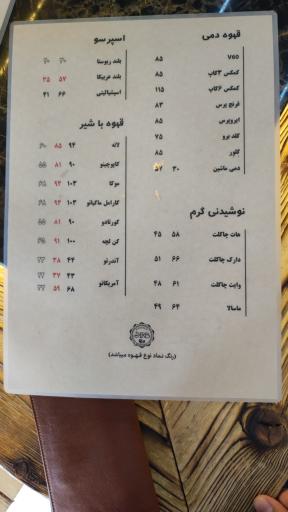 قهوه دمی
V60 ۸۵
کمکس ۳کاپ ۸۵
کمکس ۶کاپ ۱۱۵
فرنچ پرس ۸۳
ایروپرس ۸۵
کلد برو ۷۵
کلور ۸۵
دمی ماشین ۳۰ ۵۷
نوشیدنی گرم
هات چاکلت ۵۸ ۴۵
دارک چاکلت ۶۶ ۵۱
وایت چاکلت ۶۱ ۴۸
ماسالا ۶۴ ۴۹
اسپرسو
بلند ربوستا
بلند عربیکا ۵۷ ۳۵
اسپشیالیتی ۶۶ ۴۱
قهوه با شیر
لاته ۹۴ ۸۵
کاپوچینو ۹۰ ۸۱
موکا ۱۰۳ ۹۴
کارامل ماکیاتو ۱۰۳ ۹۴
کورتادو ۹۰ ۸۱
کن لچه ۱۰۰ ۹۱
آفدرتو ۴۴ ۳۸
۴۳ ۳۷
آمریکانو ۶۸ ۵۹
(رنگ نماد نوع قهوه میباشد)